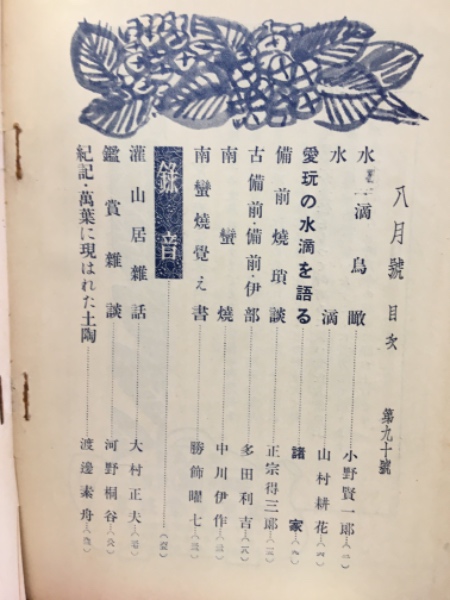 八月號 目次 第九十號
水滴鳥瞰 小野賢一郎
水滴 山村耕花
愛玩の水滴を語る 諸家
備前燒瑣談 正宗得三郎
古備前・備前・伊部 多田利吉
南蠻燒 中川伊作
南蠻燒覺え書 勝飾曜七
錄音
滙山居雜話 大村正夫
鑑賞雜談 河野桐谷
紀記・萬葉に現はれた土陶 渡邊素舟